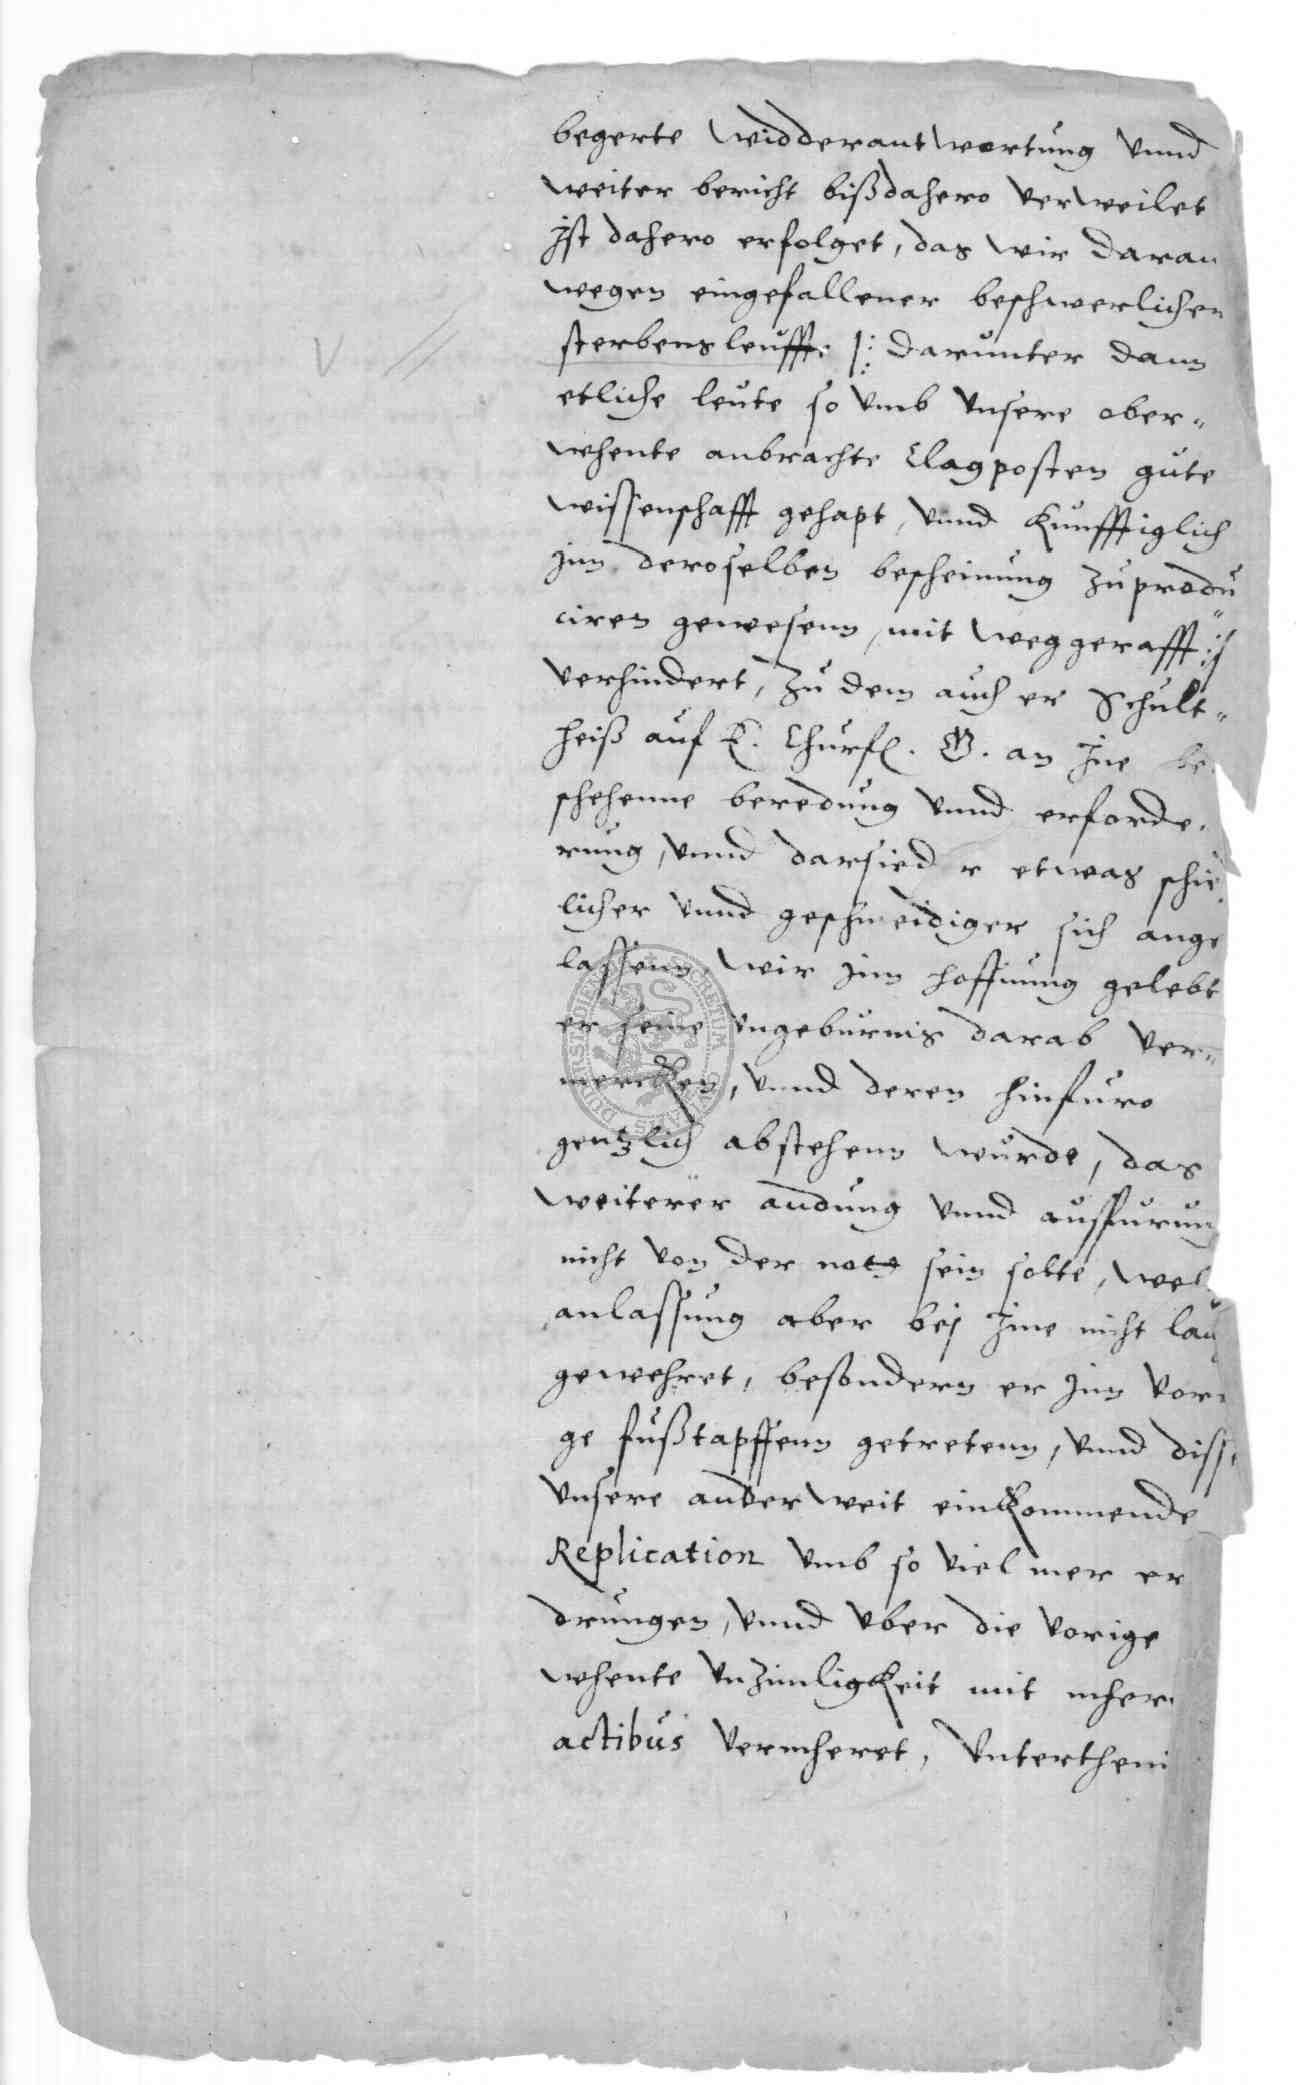 begerte widderantwortung vnnd
weiter bericht bißdahero verweilet
Ist dahero erfolget, das wir daran
wegen eingefallener beschwerlichen
sterbensleuffte |: darunter dann
etliche leute so vmb vnsere ober-
whente anbrachte Clagposten gute
wissenschafft gehapt, vnnd kunfftiglich
Inn deroselben bescheinung zuprodu-
ciren gewesenn, mit weggerafft :|
verhindert, zu dem auch er Schult-
heiß auf E. Churfl. G. an Ine be
schehenne beredung vnnd erforde-
rung, vnnd darsieder etwas schie
licher vnnd geschmeidiger sich ange
lassenn, wir Inn hoffnung gelebt
er seine vngeburnis darab ver-
mercken, vnnd deren hinfuro
gentzlich abstehenn wurde, das
weiterer andung vnnd ausfurung
nicht von der noth sein solte, wel
anlassung aber bej Ime nicht lang
gewehret, besondern er Inn vori
ge fußtapffenn getretenn, vnnd diss
vnsere anderweit einkommende
Replication vmb so viel mer er
drungen, vnnd vber die vorige
whente vnzimligkeit mit mher
actibus vermheret, Vntertheni
SECRETUM CIVIUM DUDERSTADIENSIUM